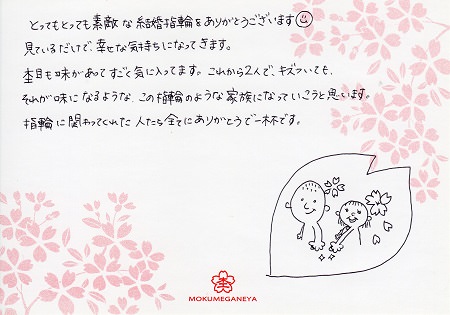 とってもとっても素敵な結婚指輪をありがとうございます
見ているだけで、幸せな気持ちになってきます。
杢目も味があってすごく気に入ってます。これから2人で、キズついても、
それが味になるような、この指輪のような家族になっていこうと思います。
指輪に関わってくれた人たち全てにありがとうで一杯です。
MOKUMEGANEYA